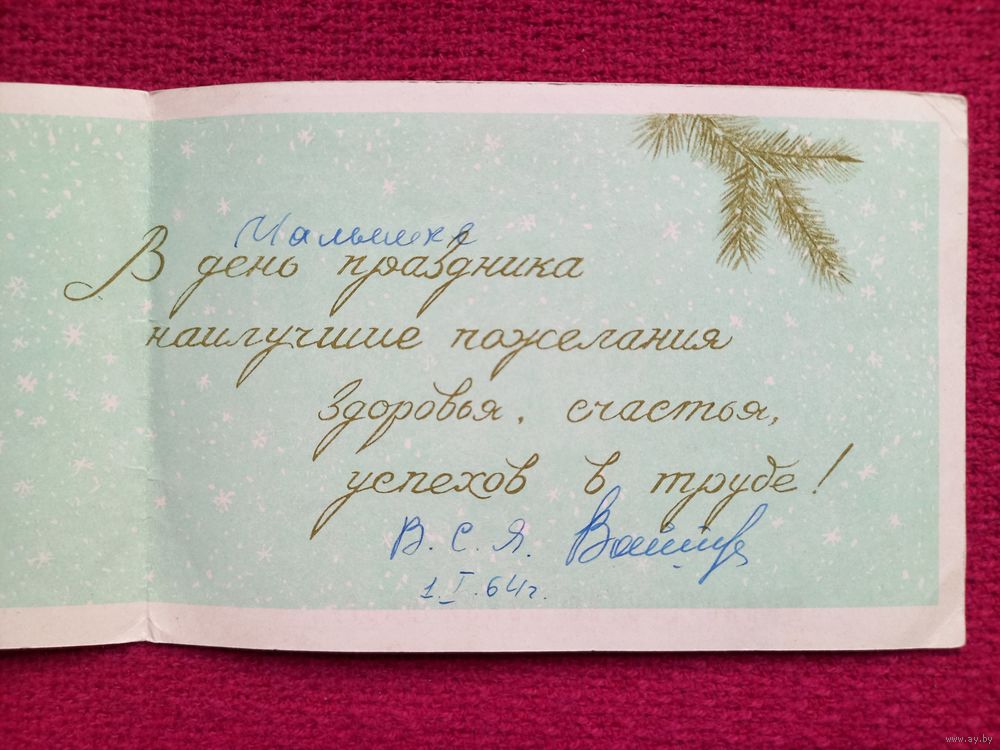 Малышке
В день праздника
наилучшие пожелания
здоровья, счастья,
успехов в труде!
В. С. Я.
1.I.64г.
www.ay.by